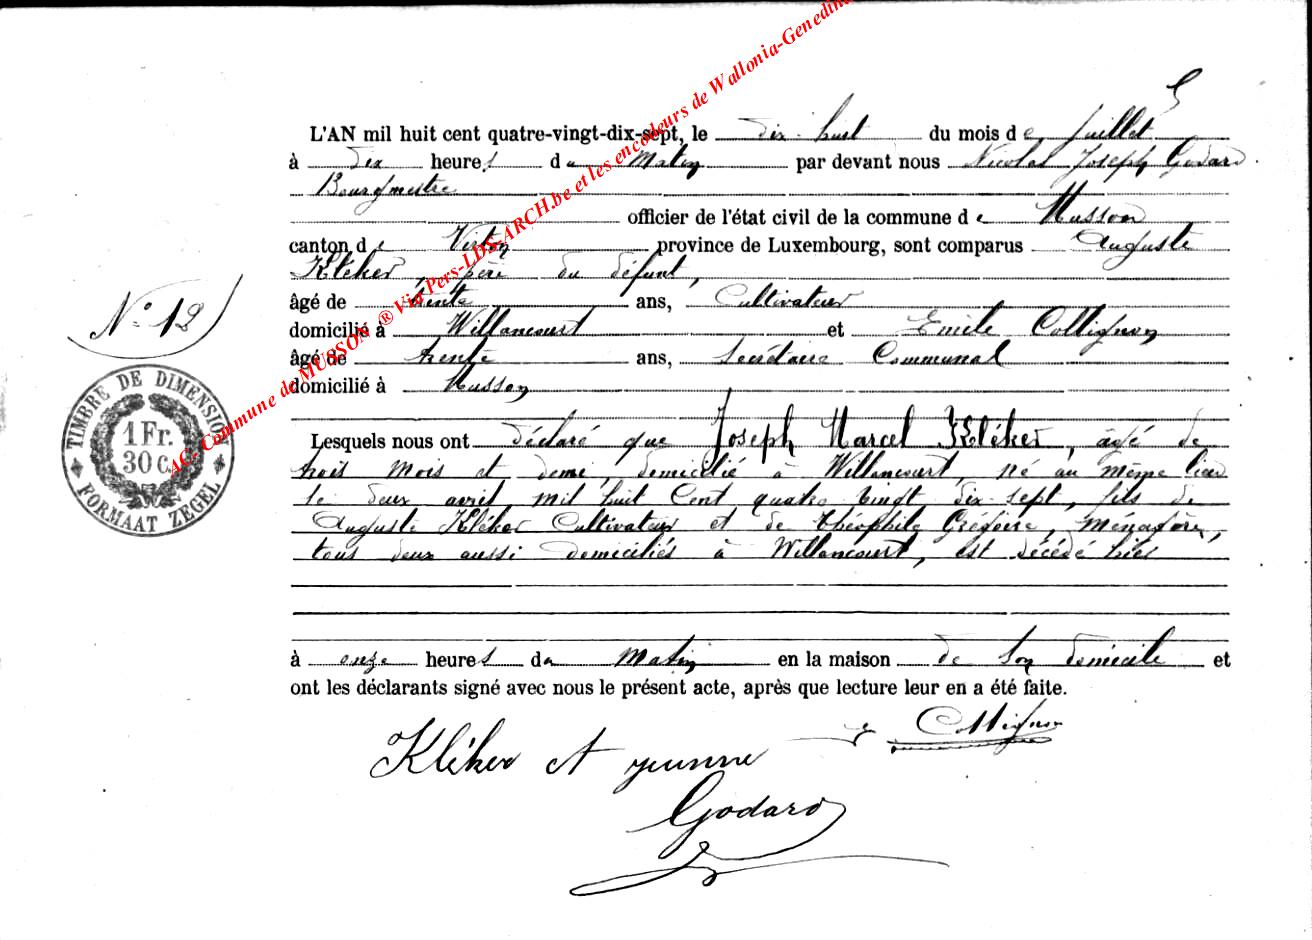 L'AN mil huit cent quatre-vingt-dix-sept, le dix-huit du mois de Juillet
à dix heures du Matin par devant nous Nicolas Joseph Godard
Bourgmestre
officier de l'état civil de la commune de Musson
canton de Virton province de Luxembourg, sont comparus Auguste
Kléker, père du défunt,
âgé de trente ans, Cultivateur
domicilié à Willancourt et Emile Collignon
âgé de trente ans, Secrétaire Communal
domicilié à Musson
N° 12
TIMBRE DE DIMENSION
1 Fr.
30 c.
FORMAAT ZEGEL
Lesquels nous ont déclaré que Joseph Marcel Kléker, âgé de
trois mois et demi, domicilié à Willancourt, né au même lieu
le deux avril mil huit Cent quatre vingt dix-sept, fils de
Auguste Kléker Cultivateur et de Théophile Grégoire, Ménagère,
tous deux aussi domiciliés à Willancourt, est décédé hier
à onze heures du Matin en la maison de son domicile et
ont les déclarants signé avec nous le présent acte, après que lecture leur en a été faite.
Collignon
Kléker
Godard
AC. Commune de MUSSON ® Via Pers-LDS-ARCH.be et les encodeurs de Wallonia-Genedina